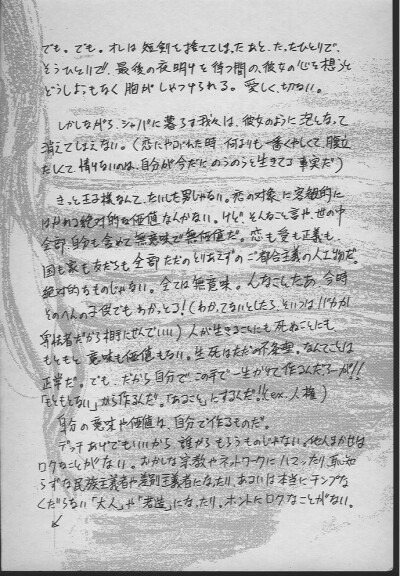 でも。でも。オレは短剣を捨ててしまったあと、たったひとりで、
そうひとりで!、最後の夜明けを待つ間の、彼女の心を想うと
どうしようもなく胸がしめつけられる。愛しく、切ない。
しかしながら、シャバに暮らす我々は、彼女のように泡となって
消えてしまえない。(恋にやぶれた時、何よりも一番くやしくて、腹立
たしくて、情けないのは、自分が今だにのうのうと生きてる事実だ)
きっと王子様なんて、たいした男じゃない。恋の対象に客観的に
はかれる絶対的な価値なんかない。けど、そんなこと言や、世の中
全部、自分も含めて無意味で無価値だ。恋も愛も正義も、
国も家も友だちも全部ただのとりあえずのご都合主義の人工物だ。
絶対的なものじゃない。全ては無意味。んなこたあ、今時
そのへんの子供でもわかっとる!(わかってないとしたら、そいつはバカか
卑怯者だから相手にせんでいい)人が生きることにも死ぬことにも
もともと意味も価値もない。生死はただの不条理。なんてことは
正半だ。でも、だから自分で、この手で一生かけて作るんだろーが!!
「もともとない」から作るんだ。「あること」にするんだ!!(ex.人権)
自分の意味や価値は、自分で作るものだ。
デッチあげでもいいから、誰からもらうものじゃない。他人まかせは
ロクなことがない。おかしな宗教やネットワークにハマったり、恥知
らずな民族主義者や差別主義者になったり、あるいは本当にチンプな
くだらない「大人」や「若造」になったり。ホントにロクなことがない。